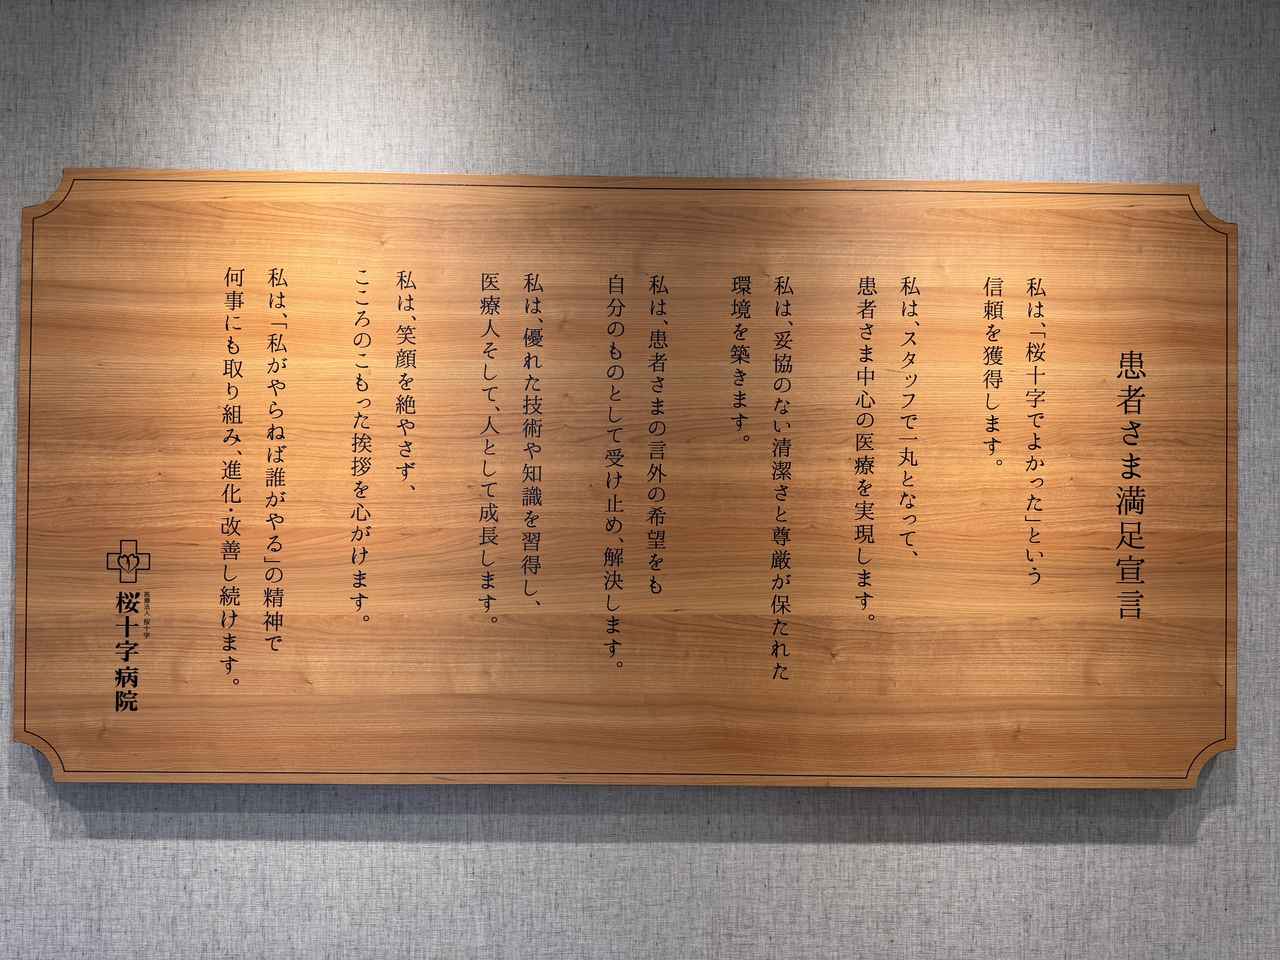 患者さま満足宣言
私は、「桜十字でよかった」という
信頼を獲得します。
私は、スタッフで一丸となって、
患者さま中心の医療を実現します。
私は、妥協のない清潔さと尊厳が保たれた
環境を築きます。
私は、患者さまの言外の希望をも
自分のものとして受け止め、解決します。
私は、優れた技術や知識を習得し、
医療人そして、人として成長します。
私は、笑顔を絶やさず、
こころのこもった挨拶を心がけます。
私は、「私がやらねば誰がやる」の精神で
何事にも取り組み、進化・改善し続けます。
医療法人 桜十字
桜十字病院